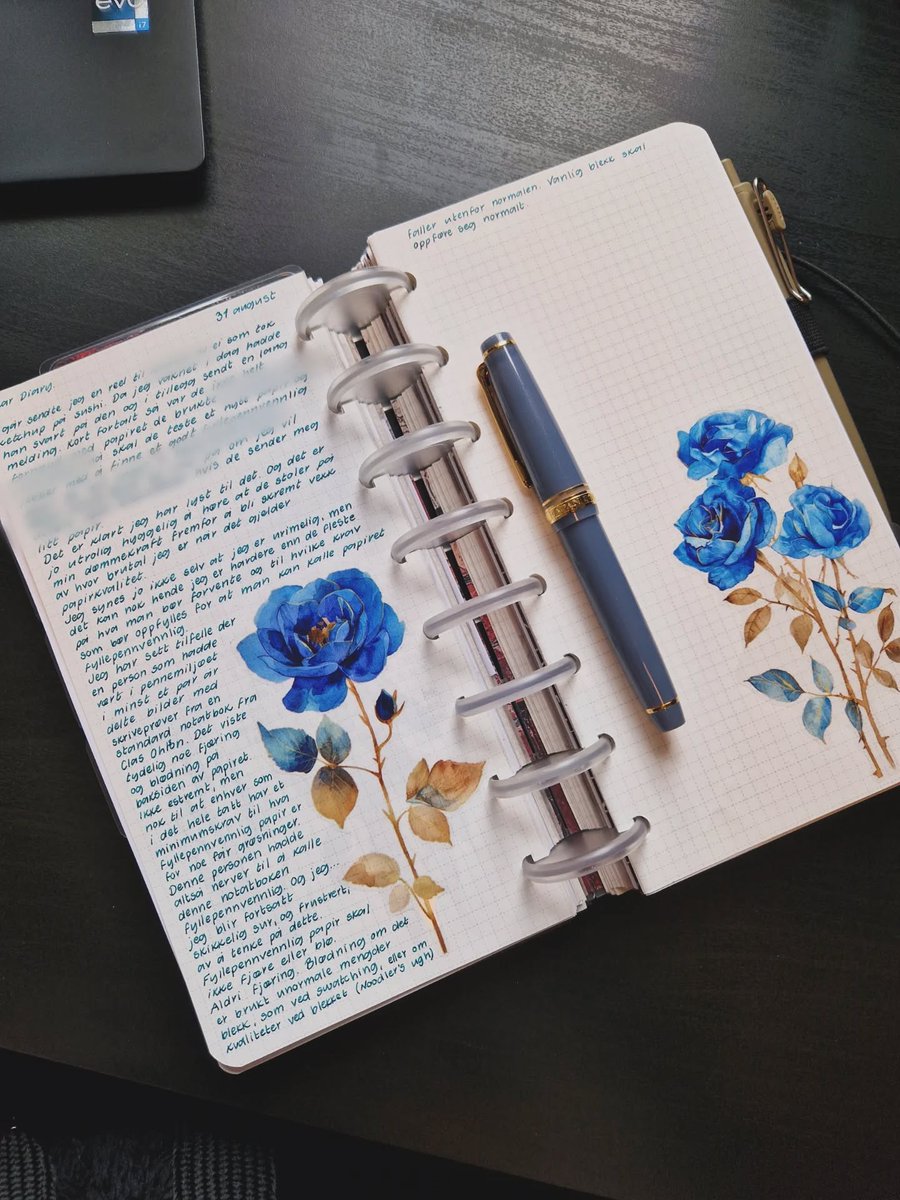 evo
i7
31 august
ar Diary.
går sendte jeg en reel til ei som tok
ketchup på sushi. Da jeg våknet i dag hadde
han svart på den og i tillegg sendt en lang
melding. Kort fortalt så var de helt
med papiret de brukte
med å skal de teste et nytt papir og
med å finne et godt fyllepennvennlig
på om jeg vil
hvis de sender meg
litt papir.
Det er klart jeg har lyst til det. Og det er
jo utrolig hyggelig å høre at de stoler på
min dømmekraft fremfor å bli skremt vekk
av hvor brutal jeg er når det gjelder
papirkvalitet.
Jeg synes jo ikke selv at jeg er urimelig, men
det kan nok hende jeg er hardere enn de fleste
på hva man bør forvente og til hvilke krav
som bør oppfylles for at man kan kalle papiret
fyllepennvennlig.
Jeg har sett tilfelle der
en person som hadde
vært i pennemiljøet
i minst et par år
delte bilder med
skriveprøver fra en
standard notatbok fra
Clas Ohlson. Det viste
tydelig noe fjæring
og blødning på
baksiden av papiret.
Ikke estremt, men
nok til at enhver som
i det hele tatt har et
minimumskrav til hva
fyllepennvennlig papir er
for noe får grøsninger.
Denne personen hadde
altså nerver til å kalle
denne notatboken
fyllepennvennlig. Og jeg...
jeg blir fortsatt
skikkelig sur, og frustrert,
av å tenke på dette.
Fyllepennvennlig papir skal
ikke fjære eller blø.
Aldri fjæring. Blødning om det
er brukt unormale mengder
blekk, som ved swatching, eller om
kvaliteter ved blekket (Noodler's ugh)
faller utenfor normalen. Vanlig blekk skal
oppføre seg normalt.